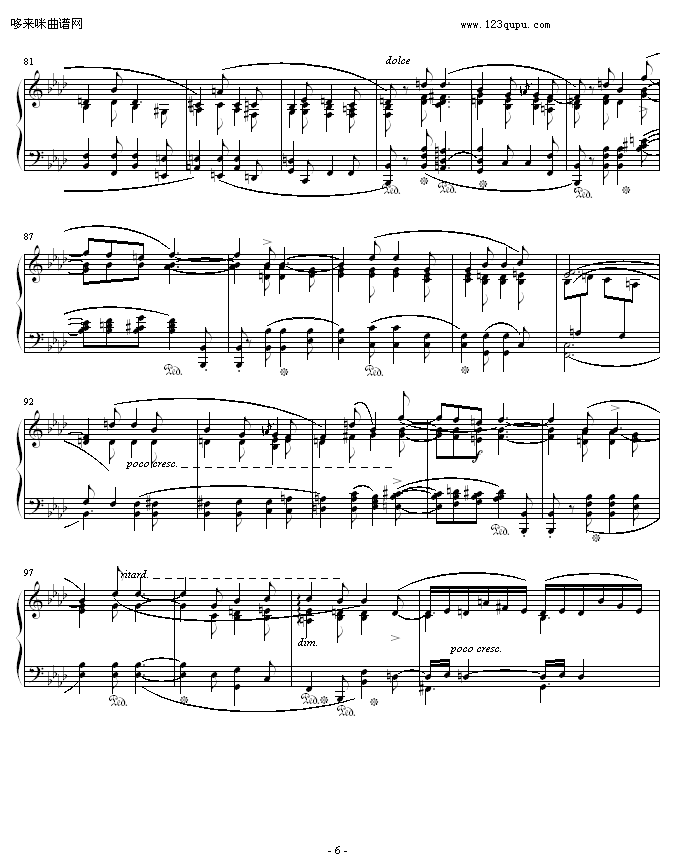 哆来咪曲谱网
www.123qupu.com
81
dolce
87
92
poco cresc.
97
ritard.
dim.
poco cresc.
- 6 -